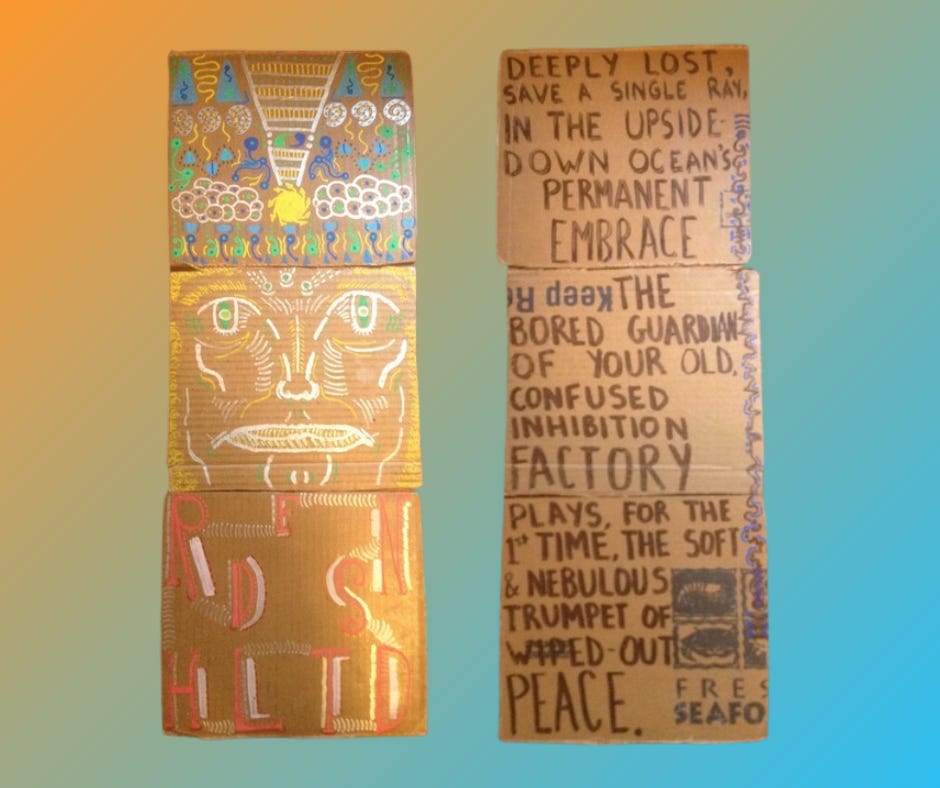 R E N
D S
H L T D
DEEPLY LOST,
SAVE A SINGLE RAY,
IN THE UPSIDE-
DOWN OCEAN'S
PERMANENT
EMBRACE
Keep Re
THE
BORED GUARDIAN
OF YOUR OLD,
CONFUSED
INHIBITION
FACTORY
PLAYS, FOR THE
1st TIME, THE SOFT
& NEBULOUS
TRUMPET OF
WIPED-OUT
PEACE.
FRES
SEAFO